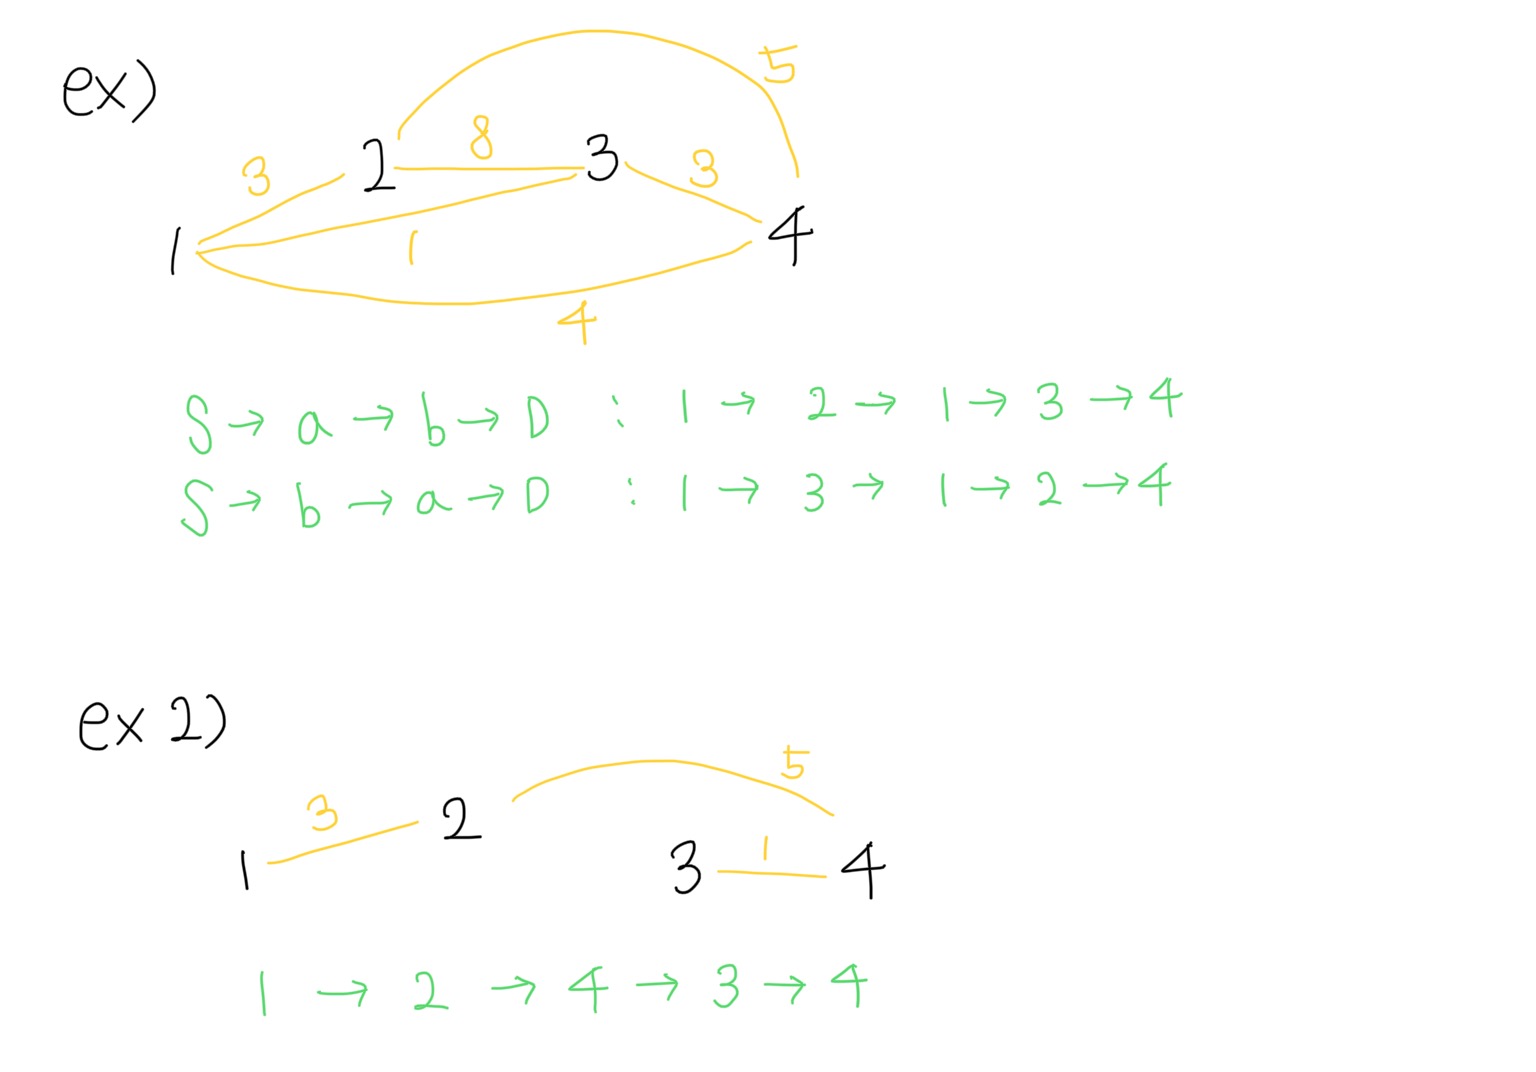 ex)
5
3 2 8 3 3
1 1 4
4
S → a → b → D : 1 → 2 → 1 → 3 → 4
S → b → a → D : 1 → 3 → 1 → 2 → 4
ex 2)
5
3 2
1 3 1 4
1 → 2 → 4 → 3 → 4